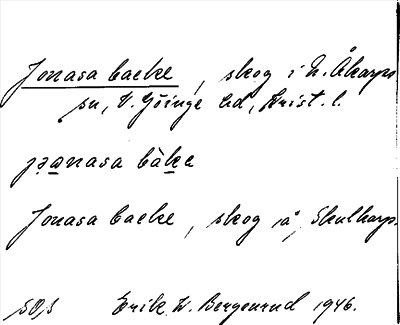 Jonasa backe, skog i N. Åkarps
sn, V. Göinge hd, Krist. l.
jɷnasa bàke
Jonasa backe, skog på Skulkarps.
SO,S Erik W. Bergenrud 1946.